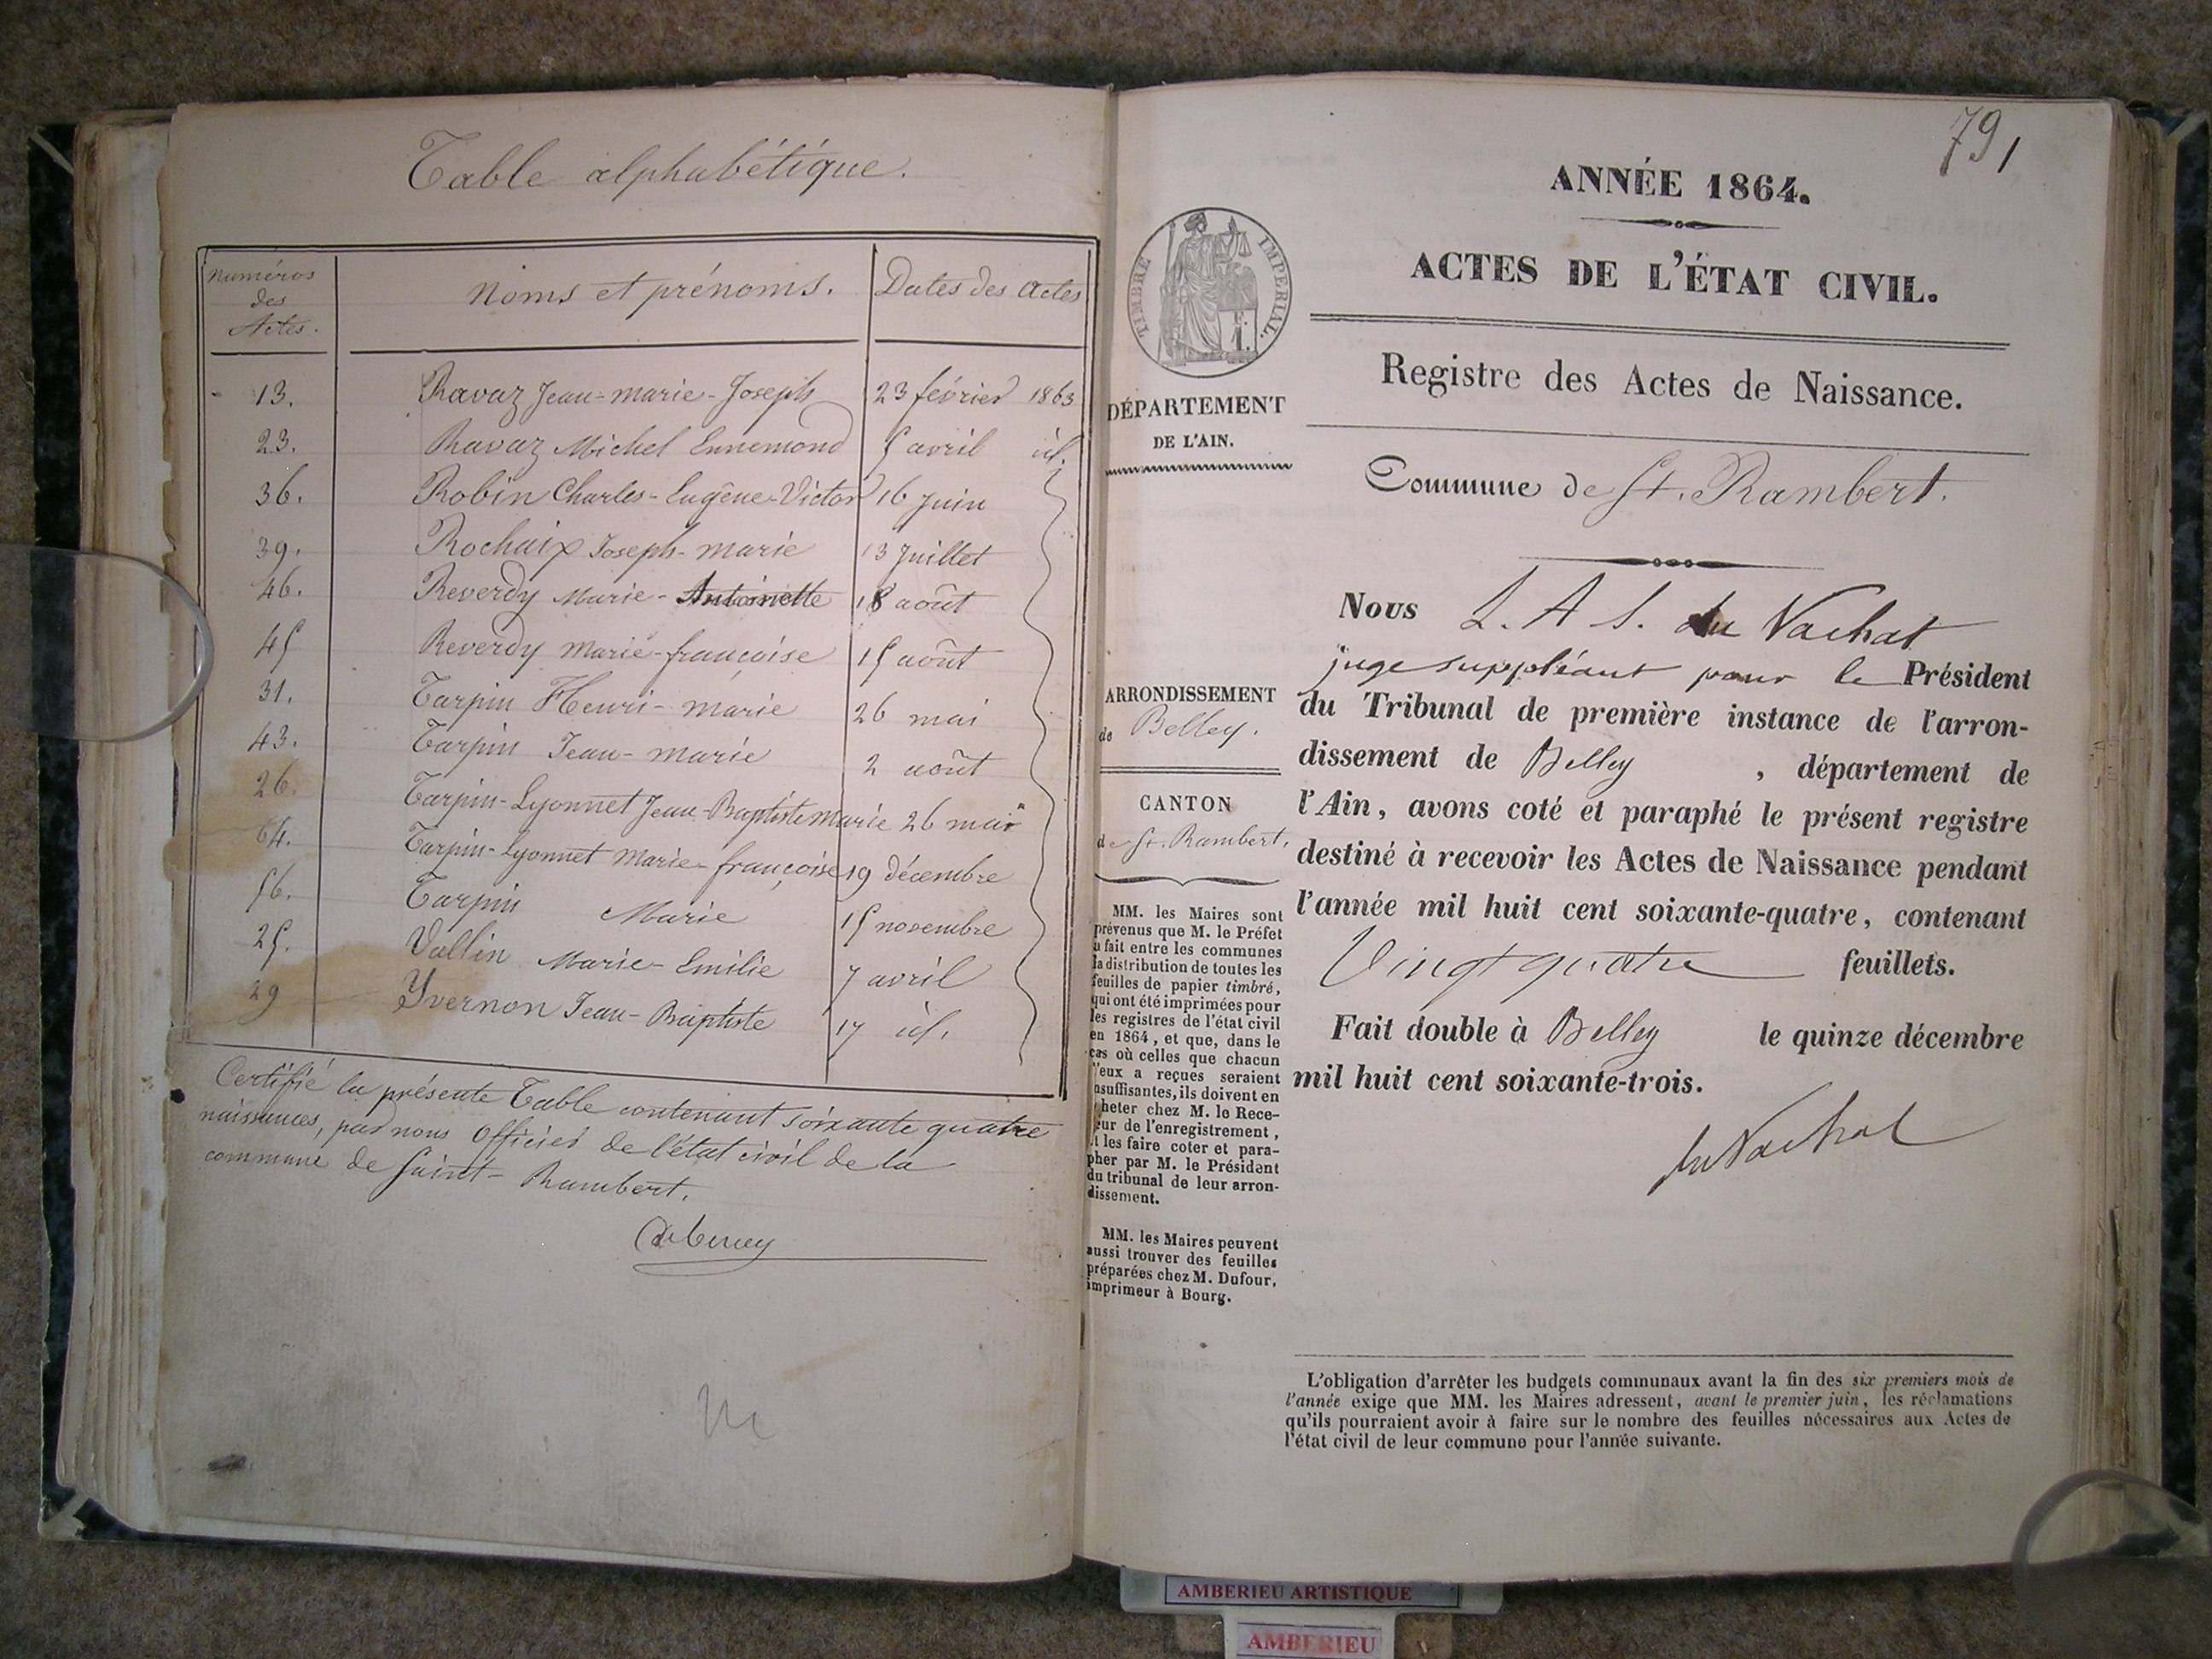 Table alphabétique.
Numéros des Actes. Noms et prénoms. Dates des Actes
13. Ravaz Jean-marie-Joseph 23 février 1863
23. Ravaz Michel Ennemond 5 avril id.
36. Robin Charles-Eugêne-Victor 16 Juin
39. Rochaix Joseph-marie 13 Juillet
46. Reverdy Marie-Antoinette 18 août
45 Reverdy Marie-françoise 15 août
31. Tarpin Henri-marie 26 mai
43. Tarpin Jean-marie 2 août
26. Tarpin-Lyonnet Jean-Baptiste Marie 26
64. Tarpin-Lyonnet Marie-françoise 19 décembre
56. Tarpin Marie 15 novembre
25. Vallin Marie-Emilie 7 avril
29 Yvernon Jean-Baptiste 17 id.
Certifié la présente Table contenant soixante quatre
naissances, par nous Officier de l'état civil de la
commune de Saint-Rambert.
79
1
ANNÉE 1864.
ACTES DE L'ÉTAT CIVIL.
Registre des Actes de Naissance.
Commune de St. Rambert.
TIMBRE IMPERIAL.
DÉPARTEMENT
DE L'AIN.
ARRONDISSEMENT
de Belley.
CANTON
de St. Rambert.
MM. les Maires sont
prévenus que M. le Préfet
a fait entre les communes
la distribution de toutes les
feuilles de papier timbré,
qui ont été imprimées pour
les registres de l'état civil
en 1864, et que, dans le
cas où celles que chacun
d'eux a reçues seraient
insuffisantes, ils doivent en
acheter chez M. le Rece-
veur de l'enregistrement,
et les faire coter et para-
pher par M. le Président
du tribunal de leur arron-
dissement.
MM. les Maires peuvent
aussi trouver des feuilles
préparées chez M. Dufour,
imprimeur à Bourg.
Nous L. A S. du Vachat
juge suppléant pour le Président
du Tribunal de première instance de l'arron-
dissement de Belley, département de
l'Ain, avons coté et paraphé le présent registre
destiné à recevoir les Actes de Naissance pendant
l'année mil huit cent soixante-quatre, contenant
Vingt quatre feuillets.
Fait double à Belley le quinze décembre
mil huit cent soixante-trois.
du Vachat
L'obligation d'arrêter les budgets communaux avant la fin des six premiers mois de
l'année exige que MM. les Maires adressent, avant le premier juin, les réclamations
qu'ils pourraient avoir à faire sur le nombre des feuilles nécessaires aux Actes de
l'état civil de leur commune pour l'année suivante.
AMBERIEU ARTISTIQUE
AMBERIEU